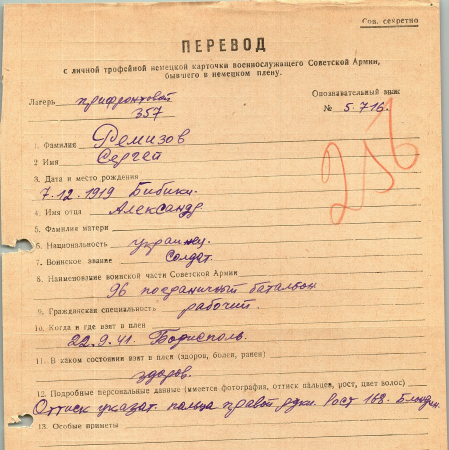 Сов. секретно
ПЕРЕВОД
с личной трофейной немецкой карточки военнослужащего Советской Армии,
бывшего в немецком плену.
Лагерь прифронтовой
357
Опознавательный знак
№ 5.716.
216
1. Фамилия Ремизов
2 Имя Сергей
3. Дата и место рождения
7.12.1919 Бибики.
4. Имя отца Александр
5. Фамилия матери
6. Национальность украинец.
7. Воинское звание Солдат.
8. Наименование воинской части Советской Армии
96 пограничный батальон
9. Гражданская специальность рабочий.
10. Когда и где взят в плен
22.9.41. Борисполь.
11. В каком состоянии взят в плен (здоров, болен, ранен)
здоров.
12. Подробные персональные данные (имеется фотография, оттиск пальцев, рост, цвет волос)
Оттиск указат. пальца правой руки. Рост 168. Блондин.
13. Особые приметы